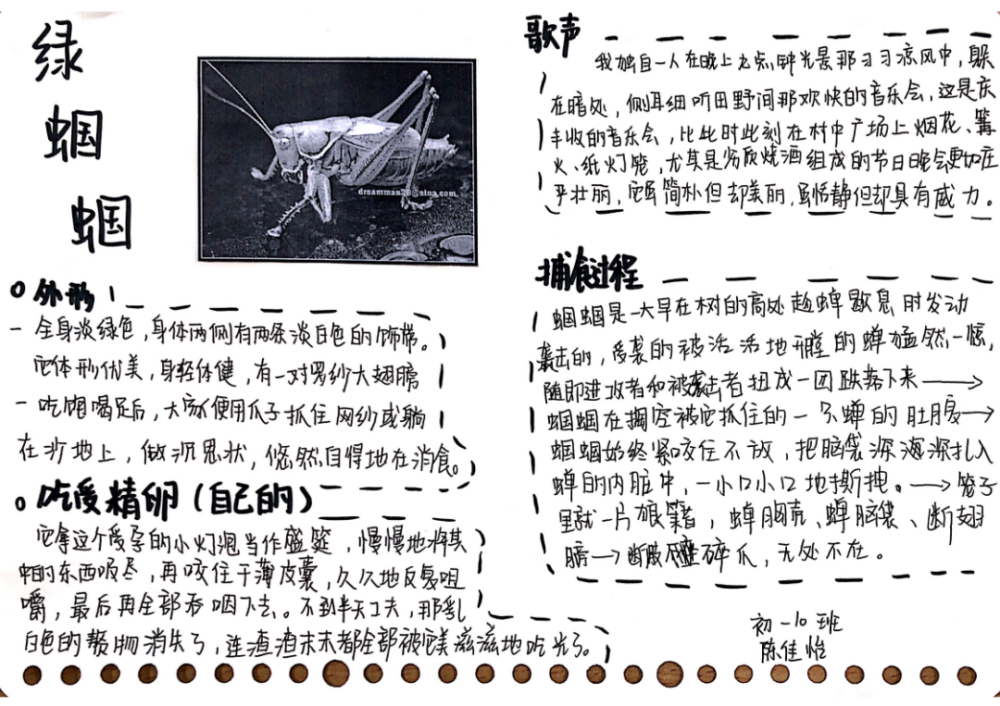 绿
蝈
蝈
dreamman20@sina.com
外形
全身淡绿色,身体两侧有两条淡白色的饰带。
它体形优美,身轻体健,有一对罗纱大翅膀
吃饱喝足后,大家便用爪子抓住网纱或躺
在沙地上,做沉思状,悠然自得地在消食。
吃受精卵(自己的)
它拿这个受孕的小灯泡当作盛筵,慢慢地将其
中的东西吸尽,再咬住干薄皮囊,久久地反复咀
嚼,最后再全部吞咽下去。不到半天工夫,那乳
白色的赘物消失了,连渣渣末末都全部被它美滋滋地吃光了。
歌声
我独自一人在晚上九点钟光景那习习凉风中,躲
在暗处,侧耳细听田野间那欢快的音乐会,这是庆
丰收的音乐会,比此时此刻在村中广场上烟花、篝
火、纸灯笼,尤其是劣质烧酒组成的节日晚会更加庄
严壮丽,它虽简朴但却美丽,虽恬静但却具有威力。
捕食过程
蝈蝈是一大早在树的高处趁蝉歇息时发动
袭击的,受袭的被活活地开膛的蝉猛然一惊,
随即进攻者和被袭击者扭成一团跌落下来→
蝈蝈在掏空被它抓住的一只蝉的肚腹→
蝈蝈始终紧咬住不放,把脑袋深深深扎入
蝉的内脏中,一小口小口地撕拽。→笼子
里就一片狼籍,蝉胸壳、蝉脑袋、断翅
膀→断肢碎爪,无处不在。
初一10班
陈佳怡